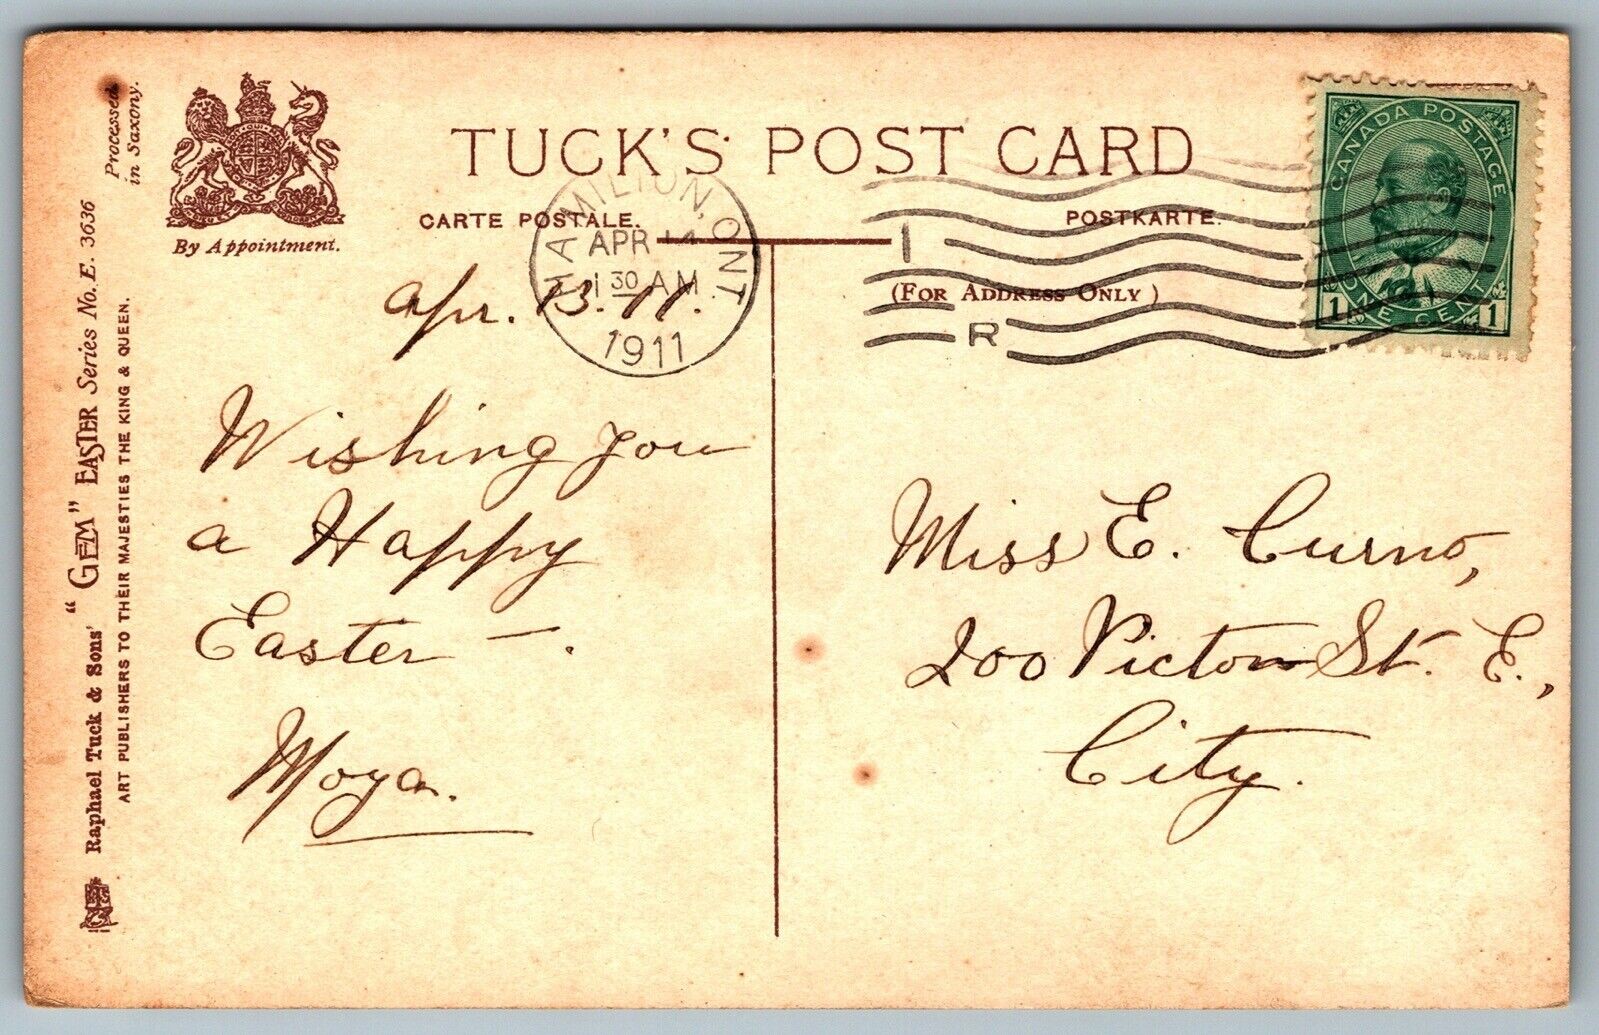 Processed
in Saxony.
By Appointment.
Raphael Tuck & Sons' "GEM" EASTER Series No. E. 3636
ART PUBLISHERS TO THEIR MAJESTIES THE KING & QUEEN.
TUCK'S POST CARD
CARTE POSTALE.
POSTKARTE.
(FOR ADDRESS ONLY)
HAMILTON, ONT.
APR
30 AM
1911
I
R
CANADA POSTAGE
1 ONE CENT 1
Apr. 13. 11.
Wishing you
a Happy
Easter —.
Moya.
Miss E. Curno,
200 Picton St. E.,
City.